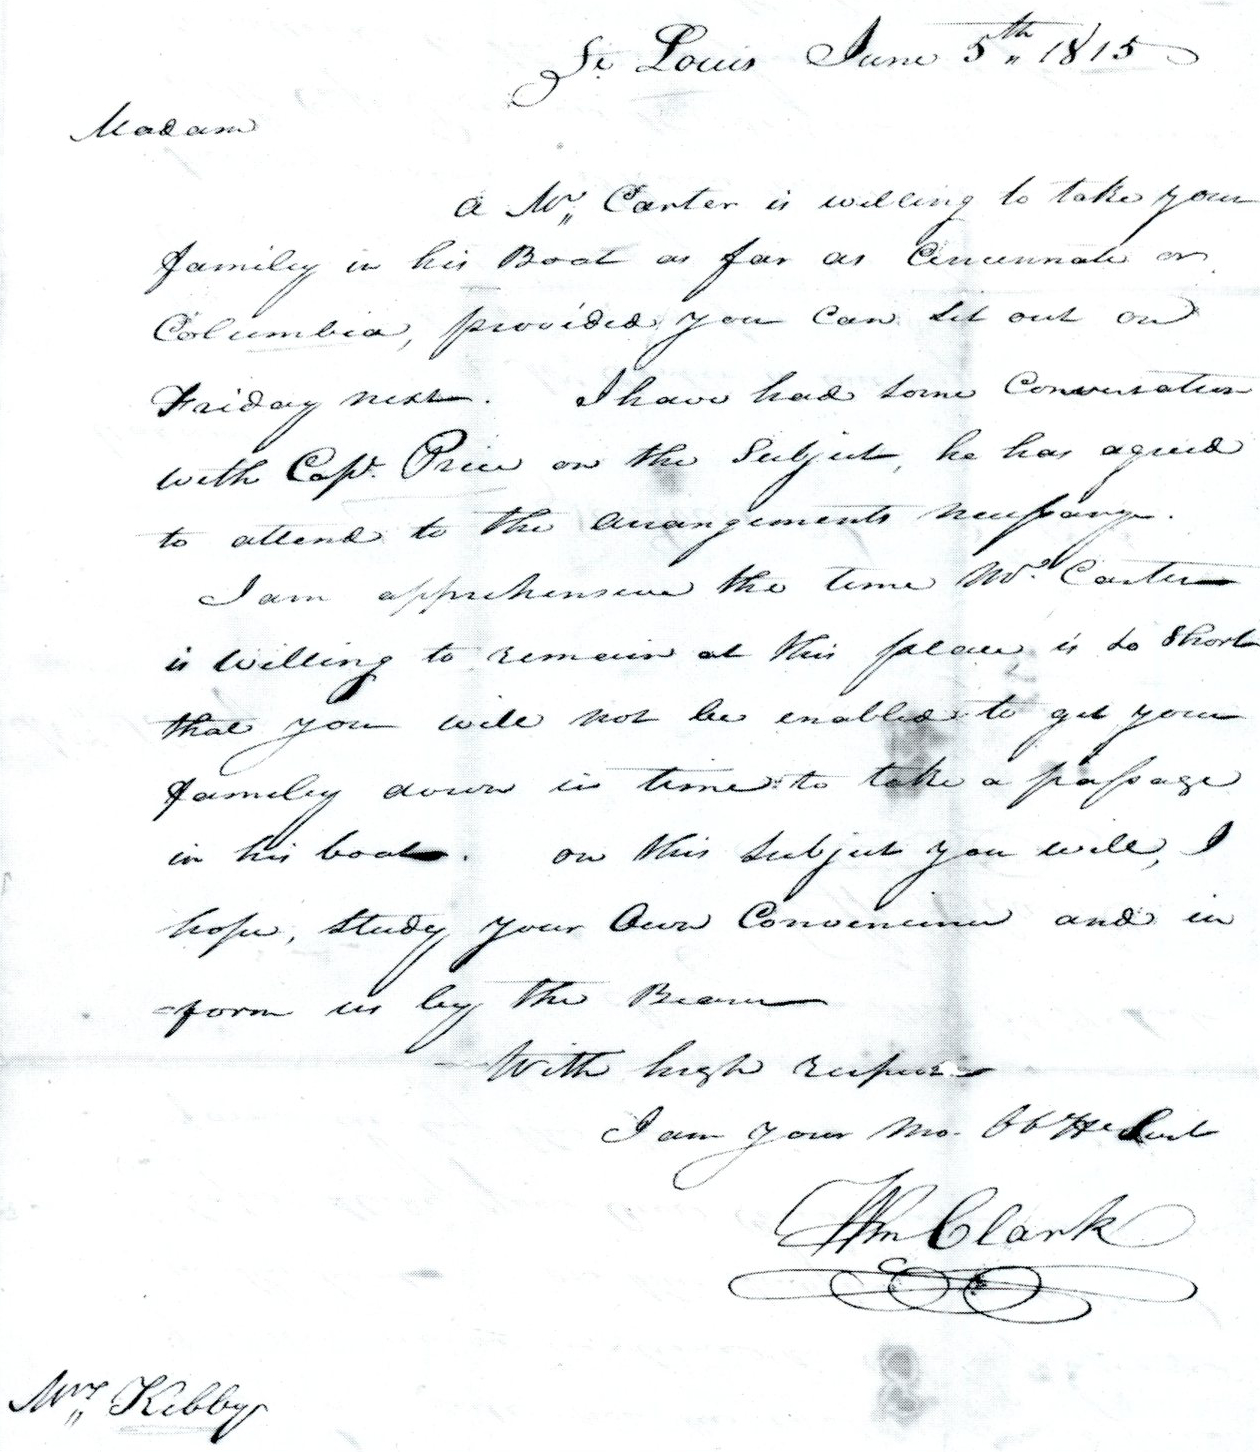 St. Louis June 5th 1815
Madam
a Mr. Carter is willing to take your
familey in his Boat as far as Cincinnate or
Columbia, provided you can set out on
Friday next. I have had some Conversation
with Capt. Price on the Subject, he has agreed
to attend to the arrangements necessary.
I am apprehensive the time Mr. Carter
is willing to remain at this place is so Short
that you will not be enabled to get your
familey down in time to take a passage
in his boat. on this subject you will, I
hope, study your Own Convenience and in
=form us by the Bearer
With high respect
I am your Mo. Ob He Sert
Wm Clark
Mrs. Kibby